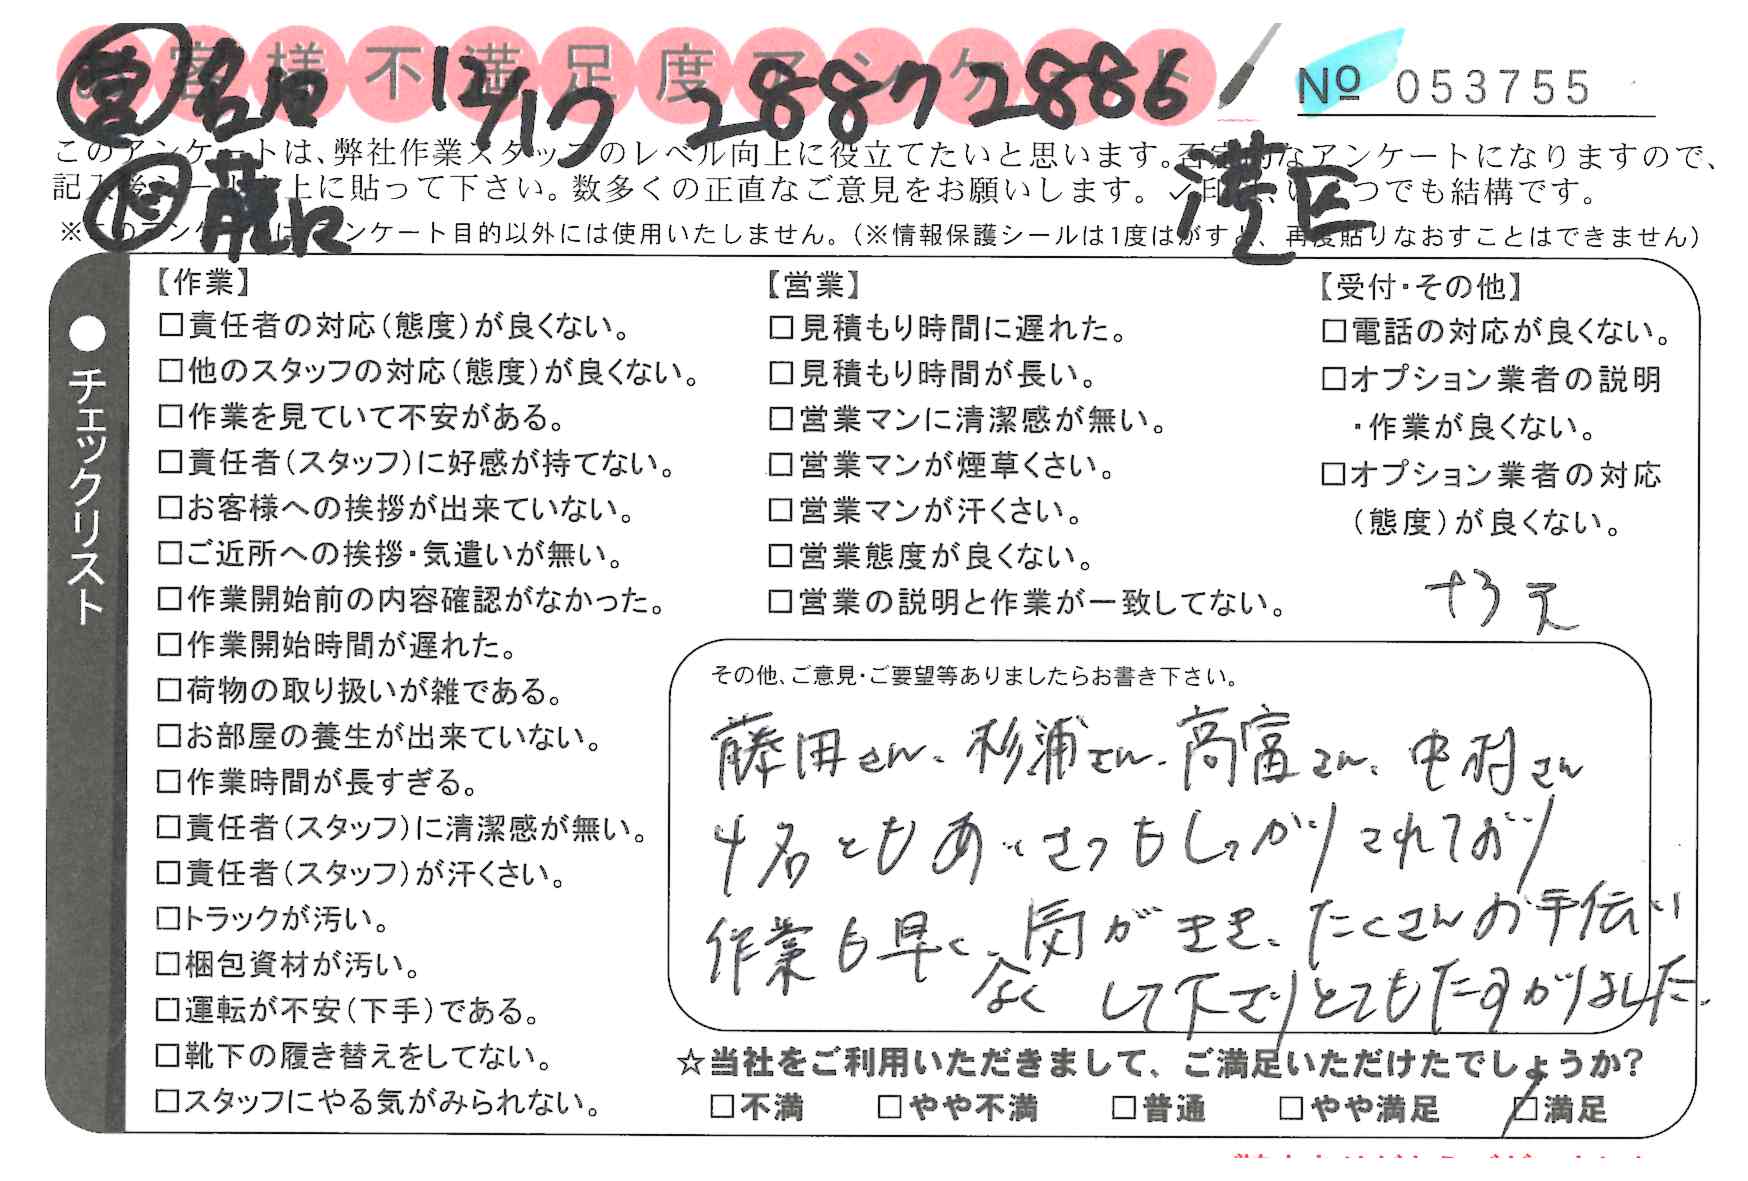 お客様不満足度アンケート
営 名古 12/17 2887 2886
№ 053755
このアンケートは、弊社作業スタッフのレベル向上に役立てたいと思います。否定的なアンケートになりますので、
記入後シールを上に貼って下さい。数多くの正直なご意見をお願いします。✓印はいくつでも結構です。
港区
※このアンケートはアンケート目的以外には使用いたしません。(※情報保護シールは1度はがすと、再度貼りなおすことはできません)
●チェックリスト
【作業】
□責任者の対応(態度)が良くない。
□他のスタッフの対応(態度)が良くない。
□作業を見ていて不安がある。
□責任者(スタッフ)に好感が持てない。
□お客様への挨拶が出来ていない。
□ご近所への挨拶・気遣いが無い。
□作業開始前の内容確認がなかった。
□作業開始時間が遅れた。
□荷物の取り扱いが雑である。
□お部屋の養生が出来ていない。
□作業時間が長すぎる。
□責任者(スタッフ)に清潔感が無い。
□責任者(スタッフ)が汗くさい。
□トラックが汚い。
□梱包資材が汚い。
□運転が不安(下手)である。
□靴下の履き替えをしてない。
□スタッフにやる気がみられない。
【営業】
□見積もり時間に遅れた。
□見積もり時間が長い。
□営業マンに清潔感が無い。
□営業マンが煙草くさい。
□営業マンが汗くさい。
□営業態度が良くない。
□営業の説明と作業が一致してない。
【受付・その他】
□電話の対応が良くない。
□オプション業者の説明
・作業が良くない。
□オプション業者の対応
(態度)が良くない。
その他、ご意見・ご要望等ありましたらお書き下さい。
藤田さん、杉浦さん、高富さん、中村さん
4名ともあいさつもしっかりされており
作業も早く、気がきき、たくさんお手伝い
して下さりとてもたすかりました。
☆当社をご利用いただきまして、ご満足いただけたでしょうか?
□不満 □やや不満 □普通 □やや満足 □満足